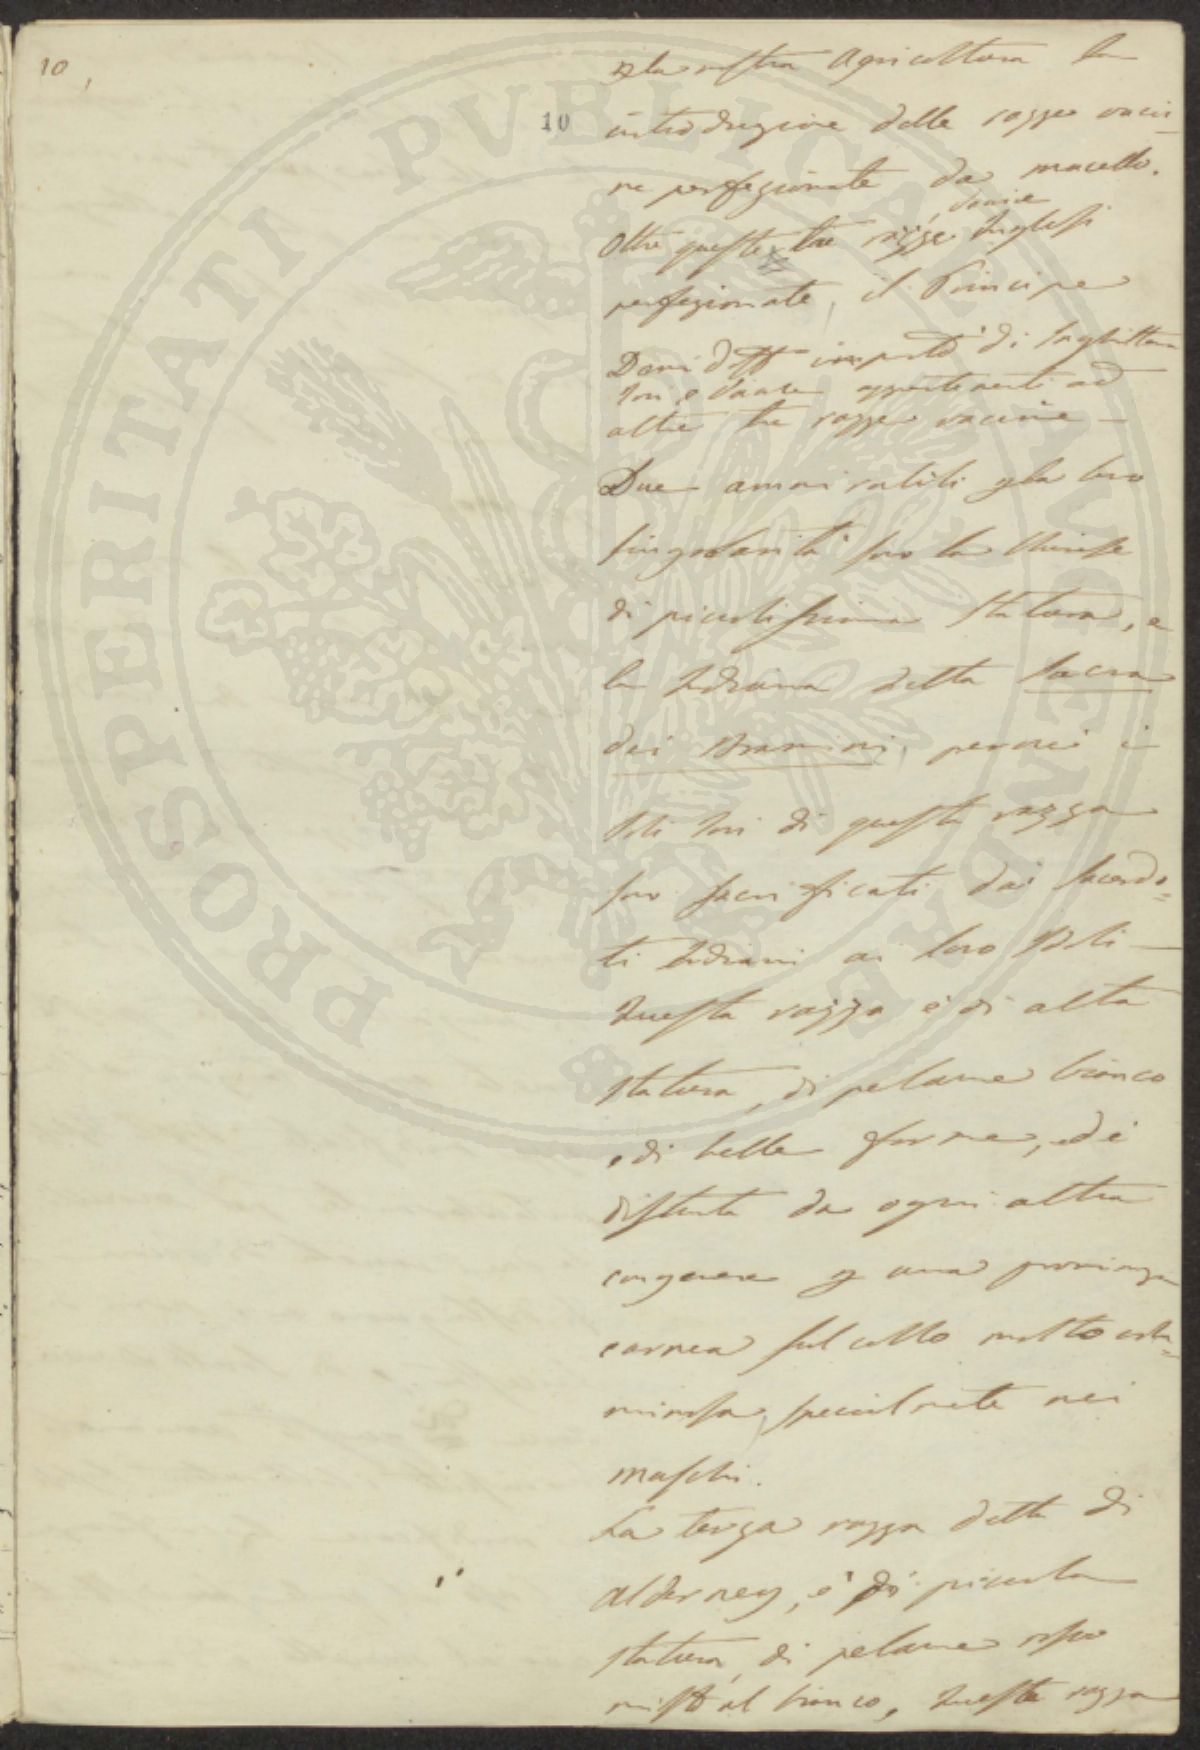 10
10
p la nostra Agricoltura la
introduzione delle razze vacci-
ne perfezionate da macello.
Oltre queste tre razze Inglesi
bovine
perfezionate, il Principe
Demidoff importò di Inghilterra
Tori e Vacche appartenenti ad
altre tre razze vaccine –
Due ammirabili p la loro
singolarità sono la Chinese
di piccolissima statura, e
la Indiana detta sacra
dei Bramini, perché i
soli Tori di questa razza
sono sacrificati dai sacerdo=
ti Indiani ai loro Idoli –
Questa razza è di alta
statura, di pelame bianco
e di belle forme, ed è
distinta da ogni altra
congenere p una prominenza
carnea sul collo molto volu=
minosa, specialmente nei
maschi.
La terza razza detta di
Alderney, è di piccola
statura, di pelame rosso
misto al bianco, questa razza
PROSPERITATI PVBLICAE AVGENDAE